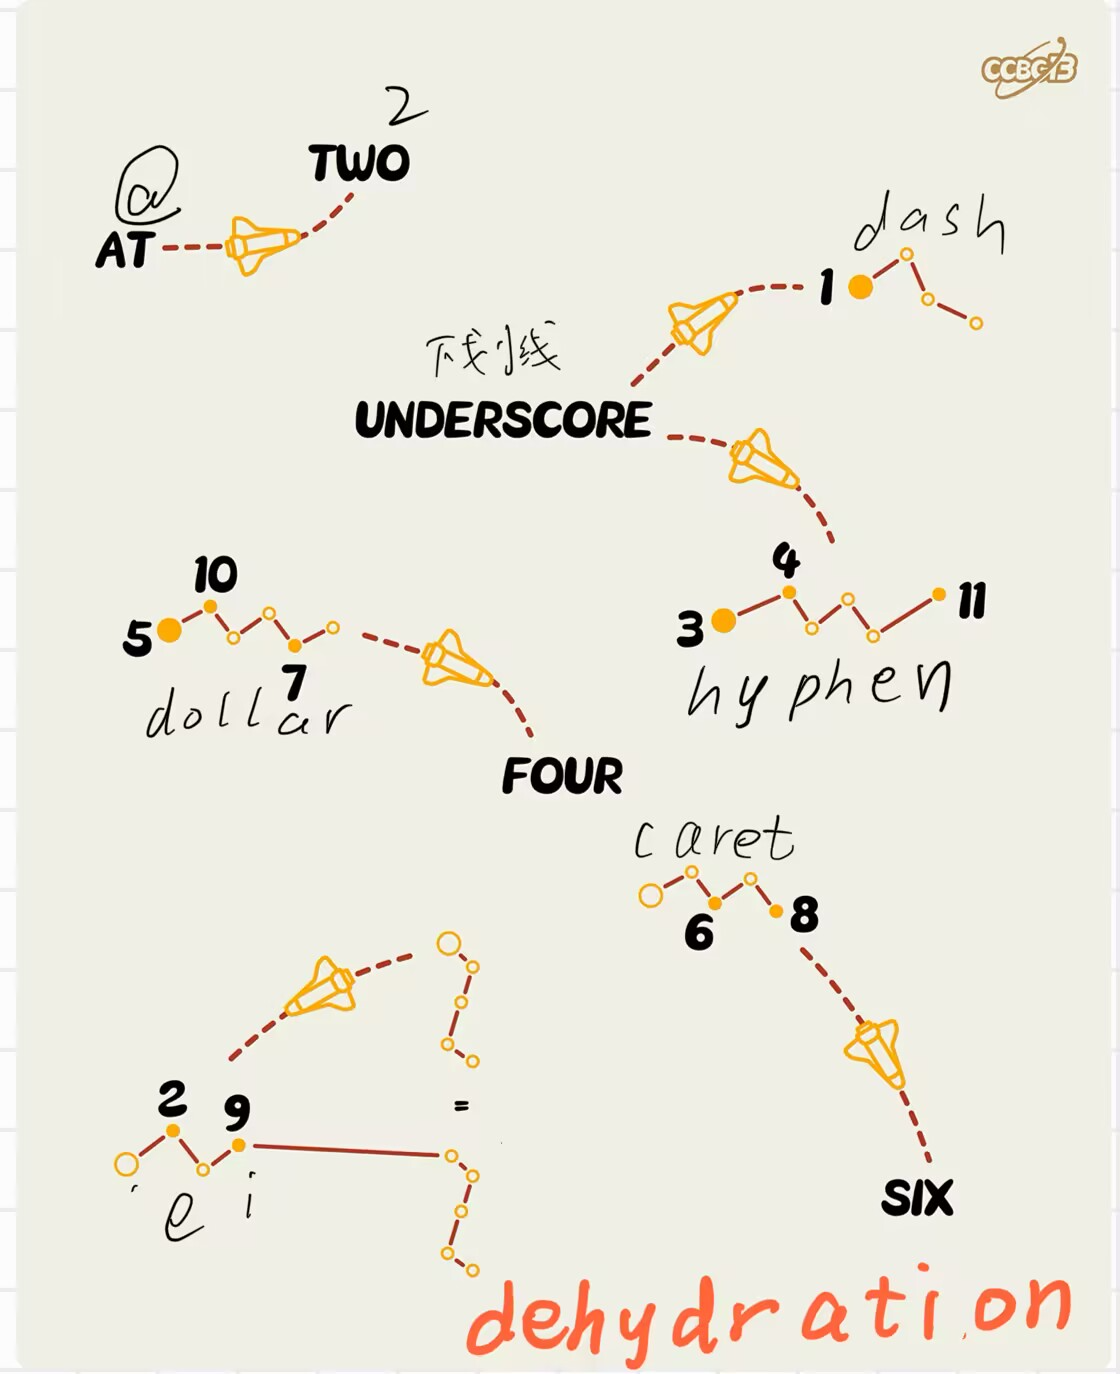 CCBC 13
2
@
TWO
AT
dash
1
下划线
UNDERSCORE
10
4
5
3
11
7
dollar
hyphen
FOUR
caret
6
8
2
9
=
' e i
SIX
dehydration